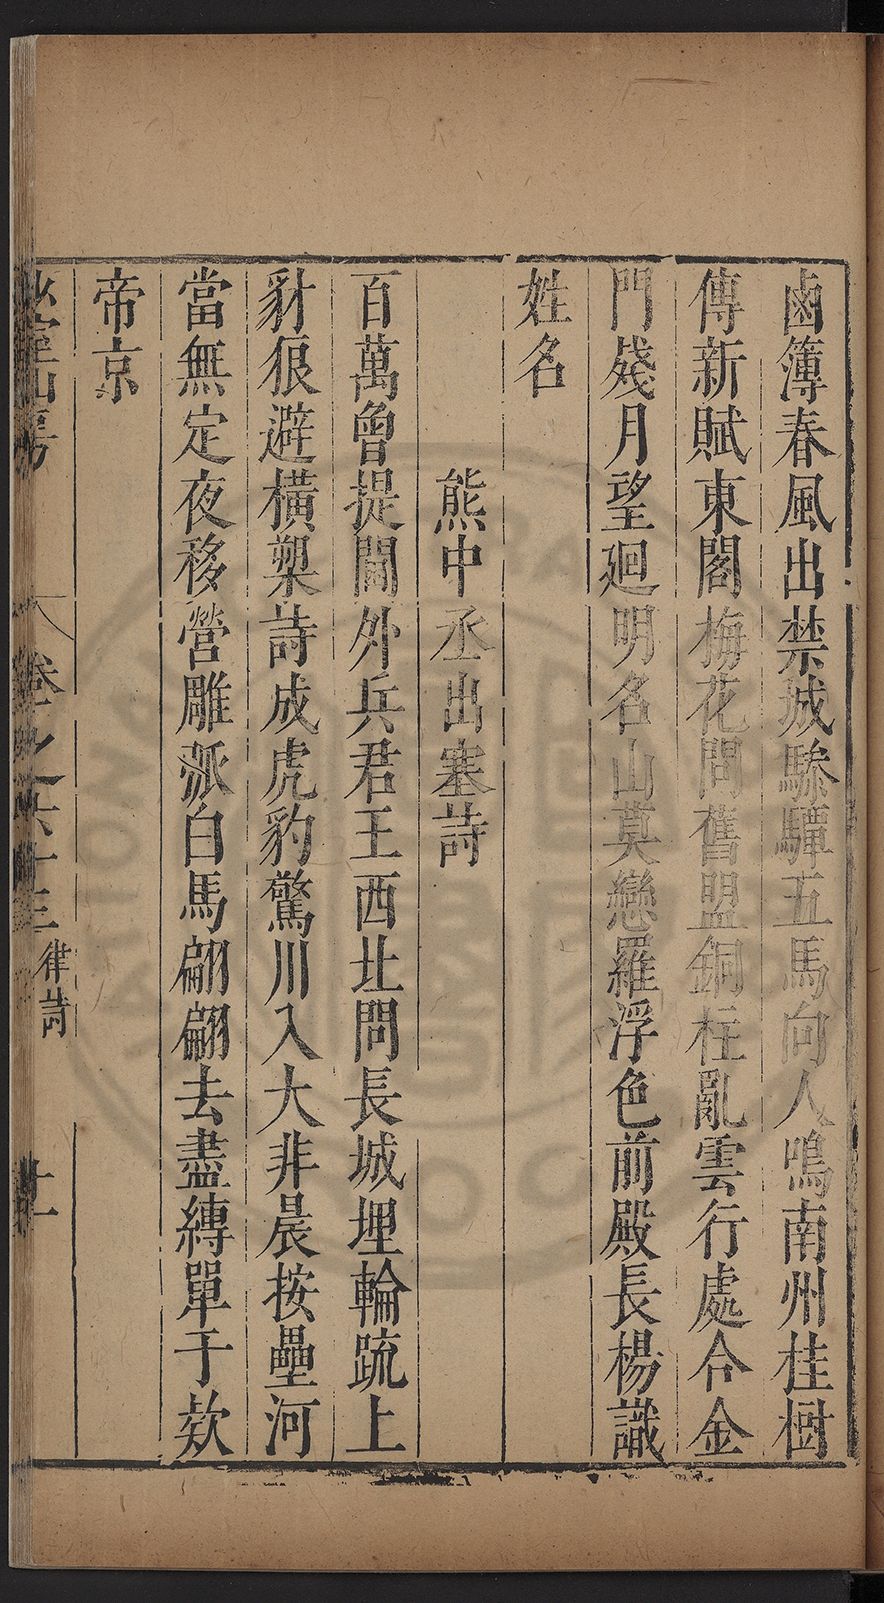 鹵簿春風出禁城驂驔五馬向人鳴南州桂樹
傳新賦東閣梅花問舊盟銅柱亂雲行處合金
門殘月望廻明名山莫戀羅浮色前殿長楊識
姓名
熊中丞出塞詩
百萬曾提閫外兵君王西北問長城埋輪疏上
豺狼避橫槊詩成虎豹驚川入大非晨按壘河
當無定夜移營雕弧白馬翩翩去盡縳單于欵
帝京
山房
卷之六十三
律詩